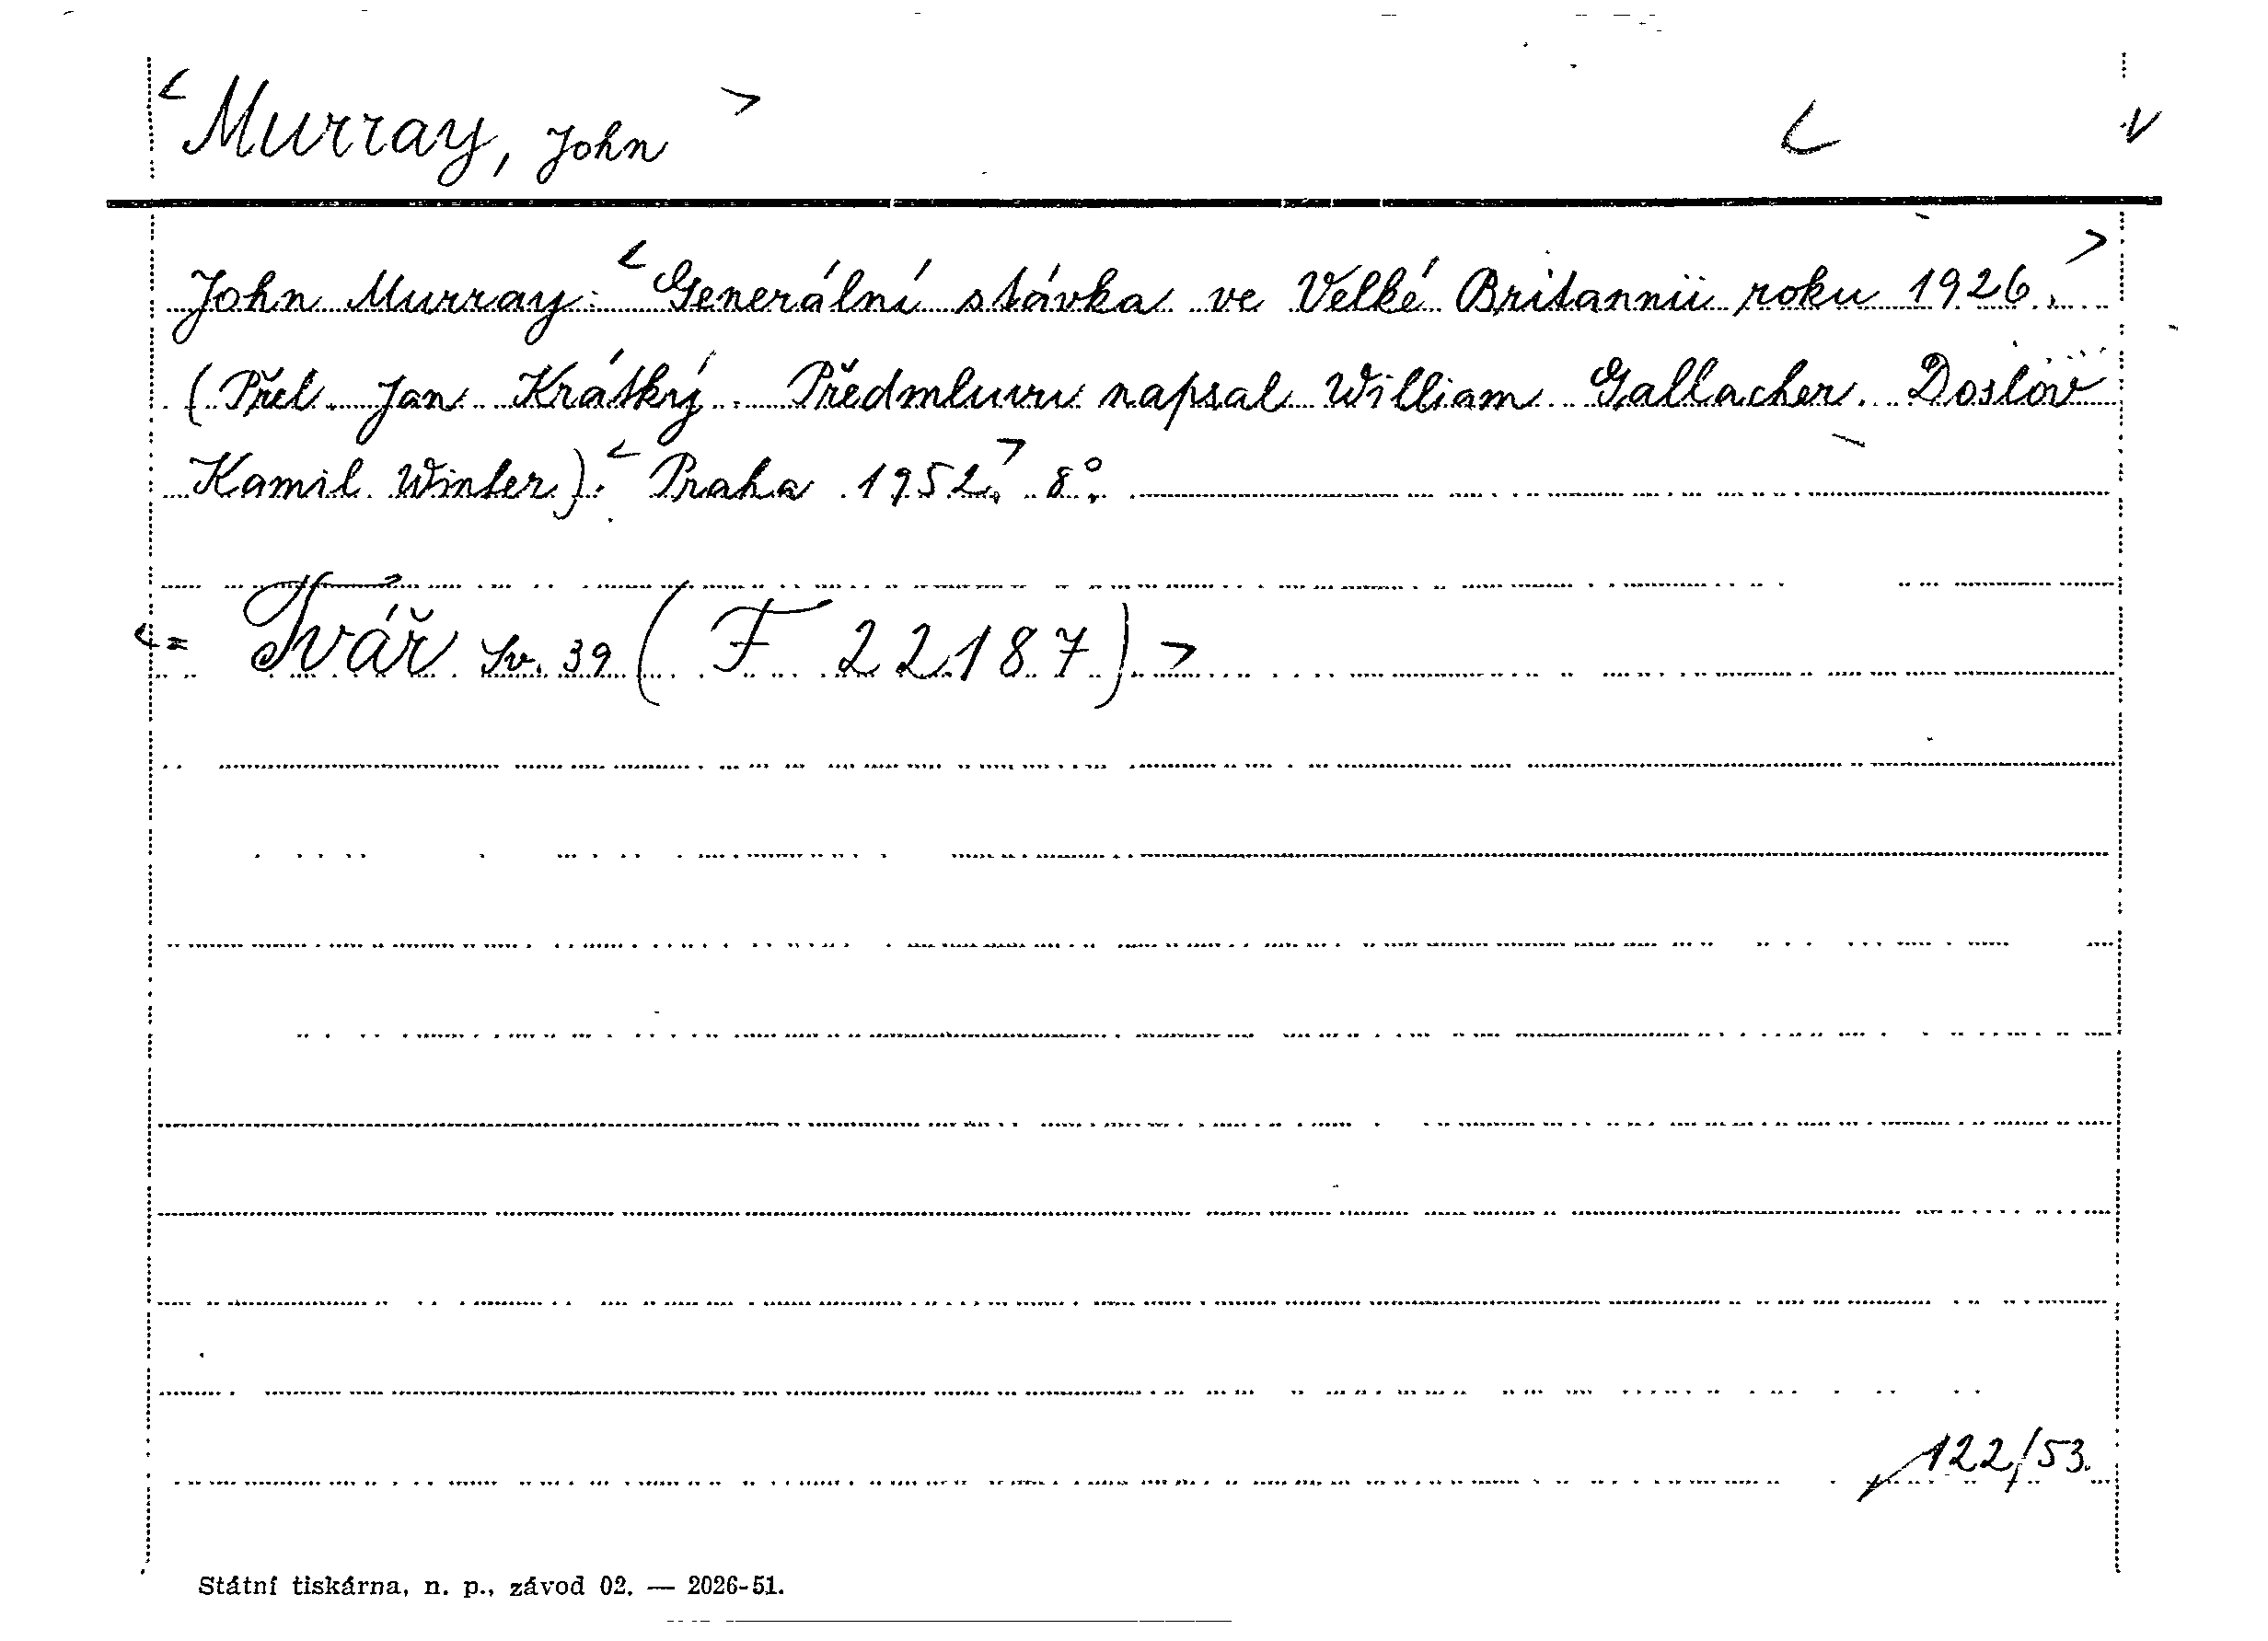 <Murray, John>
John Murray: <Generální stávka ve Velké Britannii roku 1926.>
(Přel. Jan Krátký. Předmluvu napsal William Gallacher. Doslov
Kamil Winter). <Praha 1952.> 8°.
<= Tvář Sv. 39 (F 22187)>
122/53.
Státní tiskárna, n. p., závod 02. — 2026-51.